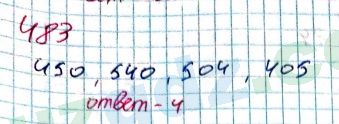 483
450, 540, 504, 405
ответ - 4